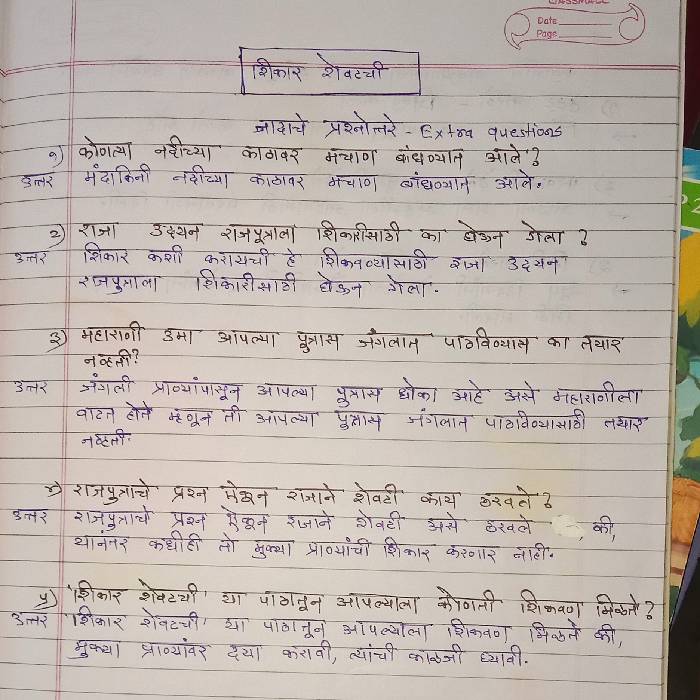 CLASSMATE
Date
Page
शिकार शेवटची
जादाचे प्रश्नोत्तरे - Extra questions
१) कोणत्या नदीच्या काठावर मचाण बांधण्यात आले?
उत्तर मंदाकिनी नदीच्या काठावर मचाण बांधण्यात आले.
२) राजा उदयन राजपूत्राला शिकारीसाठी का घेऊन गेला ?
उत्तर शिकार कशी करायची हे शिकवण्यासाठी राजा उदयन
राजपुत्राला शिकारीसाठी घेऊन गेला.
३) महाराणी उमा आपल्या पुत्रास जंगलात पाठविण्यास का तयार
नव्हती?
उत्तर जंगली प्राण्यांपासून आपल्या पुत्रास धोका आहे असे महाराणीला
वाटत होते म्हणून ती आपल्या पुत्रास जंगलात पाठविण्यासाठी तयार
नव्हती.
४) राजपुत्राचे प्रश्न ऐकून राजाने शेवटी काय ठरवले ?
उत्तर राजपुत्राचे प्रश्न ऐकून राजाने शेवटी असे ठरवले की,
यानंतर कधीही तो मुक्या प्राण्यांची शिकार करणार नाही.
५) 'शिकार शेवटची' या पाठातून आपल्याला कोणती शिकवण मिळते ?
उत्तर 'शिकार शेवटची' या पाठातून आपल्याला शिकवण मिळते की,
मुक्या प्राण्यांवर दया करावी, त्यांची काळजी घ्यावी.